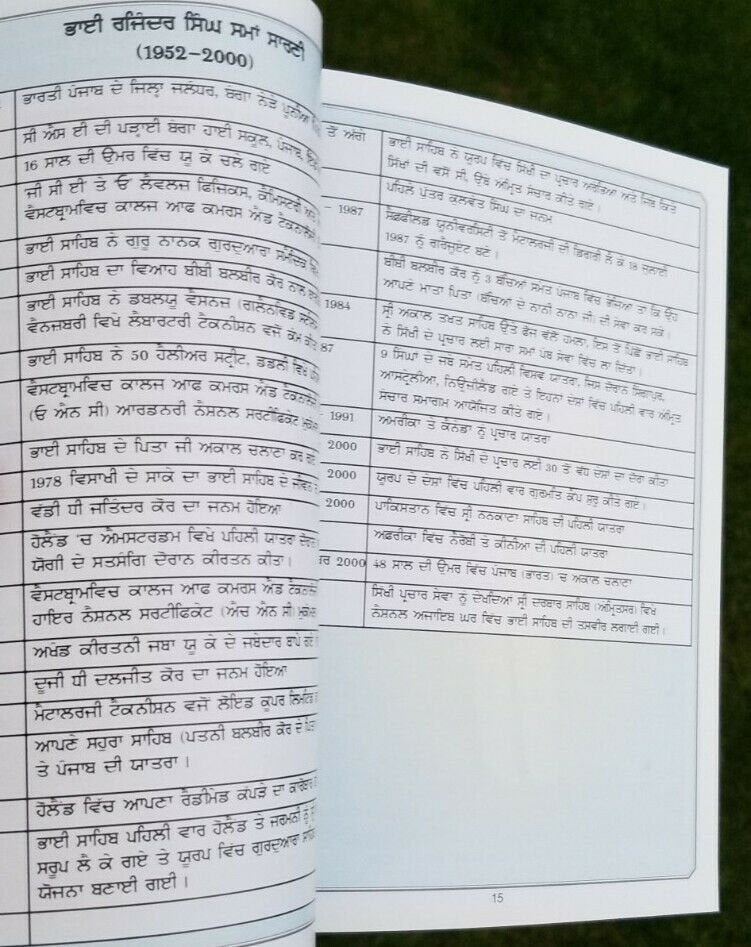 ਭਾਈ ਰਜਿੰਦਰ ਸਿੰਘ ਸਮਾਂ ਸਾਰਣੀ
(1952-2000)
ਭਾਰਤੀ ਪੰਜਾਬ ਦੇ ਜਿਲ੍ਹਾ ਜਲੰਧਰ, ਬੰਗਾ ਨੇੜੇ ਪੂਨੀਆ
ਸੀ ਐਸ ਈ ਦੀ ਪੜ੍ਹਾਈ ਬੰਗਾ ਹਾਈ ਸਕੂਲ, ਪੰਜਾਬ,
16 ਸਾਲ ਦੀ ਉਮਰ ਵਿੱਚ ਯੂ ਕੇ ਚਲੇ ਗਏ
ਜੀ ਸੀ ਈ ਤੇ ਓ ਲੈਵਲਜ ਫਿਜਿਕਸ, ਕੈਮਿਸਟਰੀ
ਵੈਸਟਬ੍ਰਾਮਵਿਚ ਕਾਲਜ ਆਫ ਕਮਰਸ ਐਂਡ ਟੈਕਨੌਲੋਜੀ
ਭਾਈ ਸਾਹਿਬ ਨੇ ਗੁਰੂ ਨਾਨਕ ਗੁਰਦੁਆਰਾ ਸਮੈਦਿਕ
ਭਾਈ ਸਾਹਿਬ ਦਾ ਵਿਆਹ ਬੀਬੀ ਬਲਬੀਰ ਕੌਰ ਨਾਲ
ਭਾਈ ਸਾਹਿਬ ਨੇ ਡਬਲਯੂ ਵੈਸਨਜ (ਗਲੈਨਵਿਡ
ਵੈਨਜਬਰੀ ਵਿਖੇ ਲੈਬਾਰਟਰੀ ਟੈਕਨੀਸਨ ਵਜੋਂ ਕੰਮ
ਭਾਈ ਸਾਹਿਬ ਨੇ 50 ਹੈਲੀਅਰ ਸਟ੍ਰੀਟ, ਡਡਲੀ ਵਿਖੇ
ਵੈਸਟਬ੍ਰਾਮਵਿਚ ਕਾਲਜ ਆਫ ਕਮਰਸ ਐਂਡ
(ਓ ਐਨ ਸੀ) ਆਰਡਨਰੀ ਨੈਸ਼ਨਲ ਸਰਟੀਫਿਕੇਟ
ਭਾਈ ਸਾਹਿਬ ਦੇ ਪਿਤਾ ਜੀ ਅਕਾਲ ਚਲਾਣਾ ਕਰ ਗਏ
1978 ਵਿਸਾਖੀ ਦੇ ਸਾਕੇ ਦਾ ਭਾਈ ਸਾਹਿਬ ਦੇ ਜੀਵਨ
ਵੱਡੀ ਧੀ ਜਤਿੰਦਰ ਕੌਰ ਦਾ ਜਨਮ ਹੋਇਆ
ਹੋਲੈਂਡ 'ਚ ਐਮਸਟਰਡਮ ਵਿਖੇ ਪਹਿਲੀ ਯਾਤਰਾ ਦੌਰਾਨ
ਯੋਗੀ ਦੇ ਸਤਸੰਗਿ ਦੌਰਾਨ ਕੀਰਤਨ ਕੀਤਾ।
ਵੈਸਟਬ੍ਰਾਮਵਿਚ ਕਾਲਜ ਆਫ ਕਮਰਸ ਐਂਡ
ਹਾਇਰ ਨੈਸ਼ਨਲ ਸਰਟੀਫਿਕੇਟ (ਐਚ ਐਨ ਸੀ)
ਅਖੰਡ ਕੀਰਤਨੀ ਜਥਾ ਯੂ ਕੇ ਦੇ ਜਥੇਦਾਰ ਥਾਪੇ ਗਏ
ਦੂਜੀ ਧੀ ਦਲਜੀਤ ਕੌਰ ਦਾ ਜਨਮ ਹੋਇਆ
ਮੈਟਾਲਰਜੀ ਟੈਕਨੀਸਨ ਵਜੋਂ ਲੋਇਡ ਕੂਪਰ ਲਿਮਟਿਡ
ਆਪਣੇ ਸਹੁਰਾ ਸਾਹਿਬ (ਪਤਨੀ ਬਲਬੀਰ ਕੌਰ ਦੇ
ਤੇ ਪੰਜਾਬ ਦੀ ਯਾਤਰਾ।
ਹੋਲੈਂਡ ਵਿੱਚ ਆਪਣਾ ਰੈਡੀਮੇਡ ਕੱਪੜੇ ਦਾ ਕਾਰੋਬਾਰ
ਭਾਈ ਸਾਹਿਬ ਪਹਿਲੀ ਵਾਰ ਹੋਲੈਂਡ ਤੇ ਜਰਮਨੀ ਨੂੰ
ਸਰੂਪ ਲੈ ਕੇ ਗਏ ਤੇ ਯੂਰਪ ਵਿੱਚ ਗੁਰਦੁਆਰਾ
ਯੋਜਨਾ ਬਣਾਈ ਗਈ।
ਤੋਂ ਅੱਗੇ ਭਾਈ ਸਾਹਿਬ ਨੇ ਯੂਰਪ ਵਿੱਚ ਸਿੱਖੀ ਦਾ ਪ੍ਰਚਾਰ ਅਰੰਭਿਆ ਅਤੇ ਜਿਥੇ ਕਿਤੇ
ਸਿੱਖਾਂ ਦੀ ਵਸੋਂ ਸੀ, ਉਥੇ ਅੰਮ੍ਰਿਤ ਸੰਚਾਰ ਕੀਤੇ ਗਏ।
ਪਹਿਲੇ ਪੁੱਤਰ ਕੁਲਵੰਤ ਸਿੰਘ ਦਾ ਜਨਮ
- 1987 ਸ਼ੈਫਫੀਲਡ ਯੂਨੀਵਰਸਿਟੀ ਤੋਂ ਮੈਟਾਲਰਜੀ ਦੀ ਡਿਗਰੀ ਲੈ ਕੇ 18 ਜੁਲਾਈ
1987 ਨੂੰ ਗਰੈਜੂਏਟ ਬਣੇ।
ਬੀਬੀ ਬਲਬੀਰ ਕੌਰ ਨੂੰ 3 ਬੱਚਿਆਂ ਸਮੇਤ ਪੰਜਾਬ ਵਿੱਚ ਭੇਜਿਆ ਤਾਂ ਕਿ ਉਹ
ਆਪਣੇ ਮਾਤਾ ਪਿਤਾ (ਬੱਚਿਆਂ ਦੇ ਨਾਨੀ ਨਾਨਾ ਜੀ) ਦੀ ਸੇਵਾ ਕਰ ਸਕੇ।
1984 ਸ੍ਰੀ ਅਕਾਲ ਤਖਤ ਸਾਹਿਬ ਉੱਤੇ ਫੌਜ ਵੱਲੋਂ ਹਮਲਾ, ਇਸ ਤੋਂ ਪਿੱਛੋਂ ਭਾਈ ਸਾਹਿਬ
ਨੇ ਸਿੱਖੀ ਦੇ ਪ੍ਰਚਾਰ ਲਈ ਸਾਰਾ ਸਮਾਂ ਪੰਥ ਸੇਵਾ ਵਿੱਚ ਲਾ ਦਿੱਤਾ।
87 9 ਸਿੰਘਾਂ ਦੇ ਜਥੇ ਸਮੇਤ ਪਹਿਲੀ ਵਿਸਵ ਯਾਤਰਾ, ਜਿਸ ਦੌਰਾਨ ਸਿੰਗਾਪੁਰ,
ਆਸਟ੍ਰੇਲੀਆ, ਨਿਊਜੀਲੈਂਡ ਗਏ ਤੇ ਇਹਨਾਂ ਦੇਸਾਂ ਵਿੱਚ ਪਹਿਲੀ ਵਾਰ ਅੰਮ੍ਰਿਤ
ਸੰਚਾਰ ਸਮਾਗਮ ਆਯੋਜਿਤ ਕੀਤੇ ਗਏ।
- 1991 ਅਮਰੀਕਾ ਤੇ ਕੈਨੇਡਾ ਨੂੰ ਪ੍ਰਚਾਰ ਯਾਤਰਾ
2000 ਭਾਈ ਸਾਹਿਬ ਨੇ ਸਿੱਖੀ ਦੇ ਪ੍ਰਚਾਰ ਲਈ 30 ਤੋਂ ਵੱਧ ਦੇਸਾਂ ਦਾ ਦੌਰਾ ਕੀਤਾ
2000 ਯੂਰਪ ਦੇ ਦੇਸਾਂ ਵਿੱਚ ਪਹਿਲੀ ਵਾਰ ਗੁਰਮਤਿ ਕੈਂਪ ਸੁਰੂ ਕੀਤੇ ਗਏ।
2000 ਪਾਕਿਸਤਾਨ ਵਿੱਚ ਸ੍ਰੀ ਨਨਕਾਣਾ ਸਾਹਿਬ ਦੀ ਪਹਿਲੀ ਯਾਤਰਾ
ਅਫਰੀਕਾ ਵਿੱਚ ਨੈਰੋਬੀ ਤੇ ਕੀਨੀਆ ਦੀ ਪਹਿਲੀ ਯਾਤਰਾ
2000 48 ਸਾਲ ਦੀ ਉਮਰ ਵਿੱਚ ਪੰਜਾਬ (ਭਾਰਤ) 'ਚ ਅਕਾਲ ਚਲਾਣਾ
ਸਿੱਖੀ ਪ੍ਰਚਾਰ ਸੇਵਾ ਨੂੰ ਦੇਖਦਿਆਂ ਸ੍ਰੀ ਦਰਬਾਰ ਸਾਹਿਬ (ਅੰਮ੍ਰਿਤਸਰ) ਵਿਖੇ
ਨੈਸ਼ਨਲ ਅਜਾਇਬ ਘਰ ਵਿੱਚ ਭਾਈ ਸਾਹਿਬ ਦੀ ਤਸਵੀਰ ਲਗਾਈ ਗਈ।
15